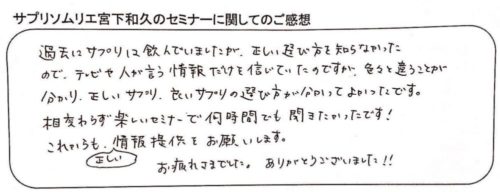 サプリソムリエ宮下和久のセミナーに関してのご感想
過去にサプリは飲んでいましたが、正しい選び方を知らなかった
ので、テレビや人が言う情報だけを信じていたのですが、色々と違うことが
分かり、正しいサプリ、良いサプリの選び方が分かってよかったです。
相変わらず楽しいセミナーで何時間でも聞きたかったです!
これからも、情報提供をお願いします。
正しい
お疲れさまでした。ありがとうございました!!